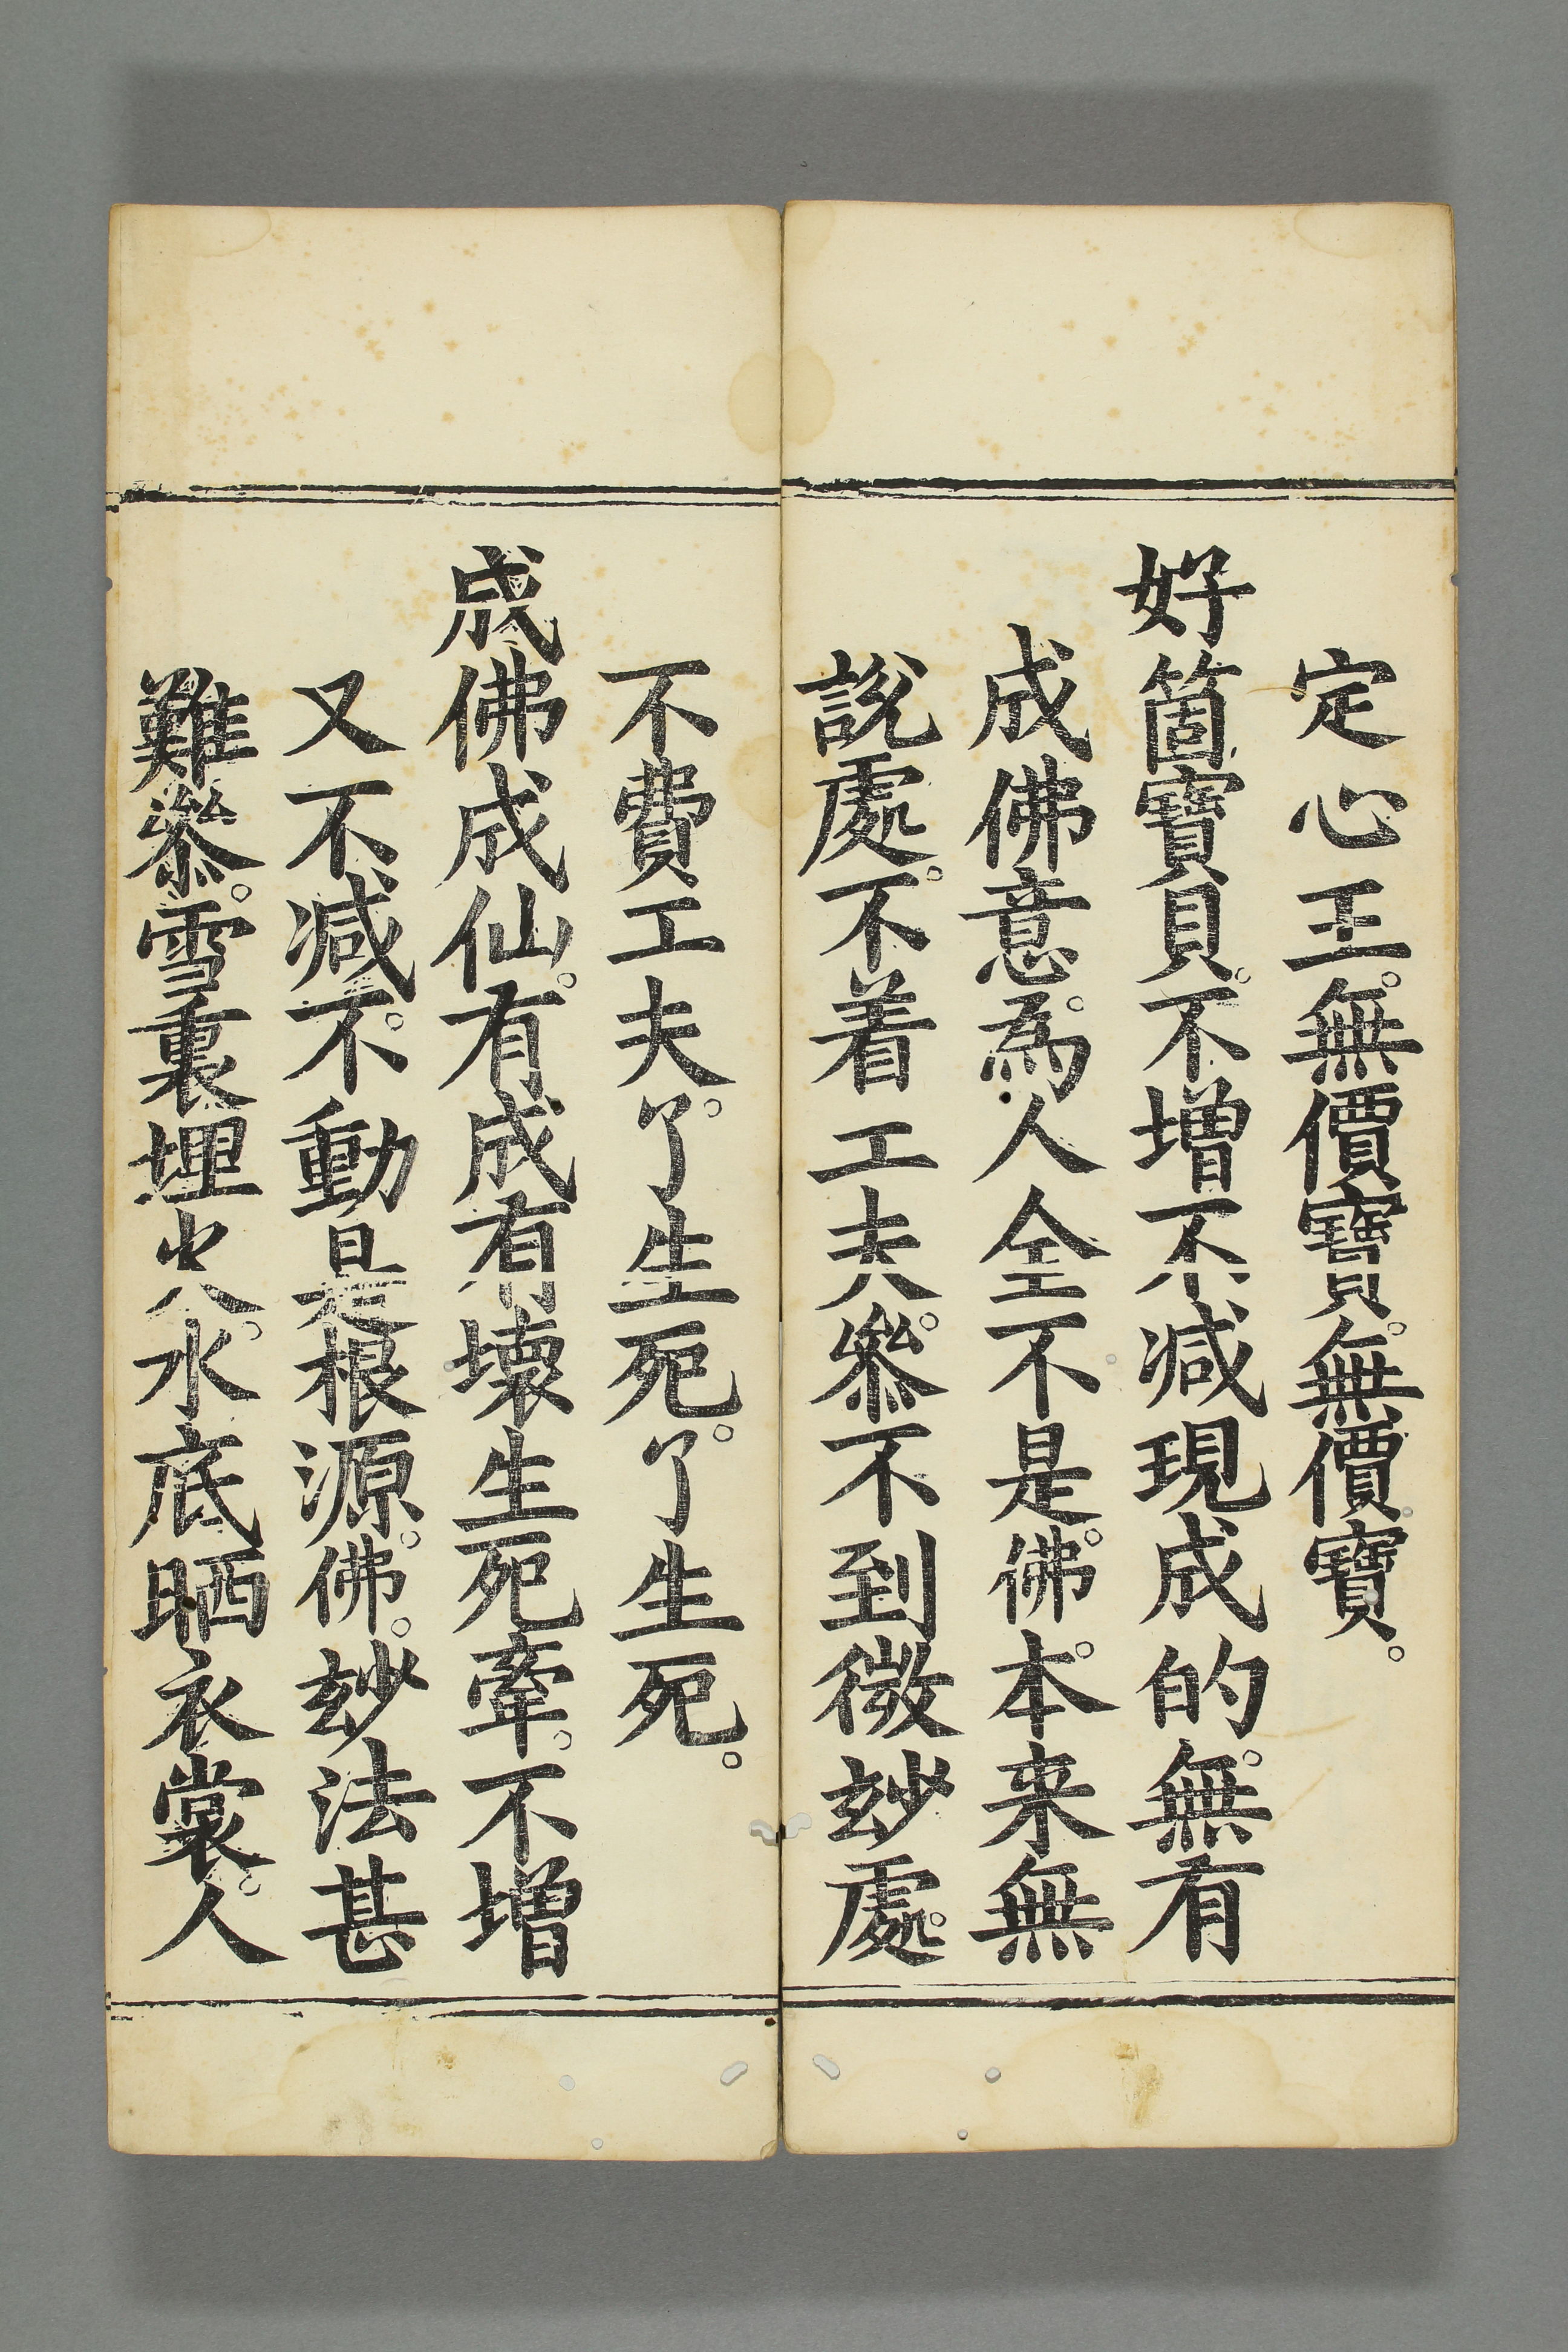 定心王。無價寶。無價寶。
好箇寶貝。不增不減現成的。無有
成佛意。爲人全不是。佛。本来無
說處。不着工夫。叅不到微玅處。
不費工夫。了生死。了生死。
成佛成仙。有成有壊生死牽。不增
又不減。不動是根源。佛。玅法甚
難叅。雪裏埋火。水底晒衣裳。人